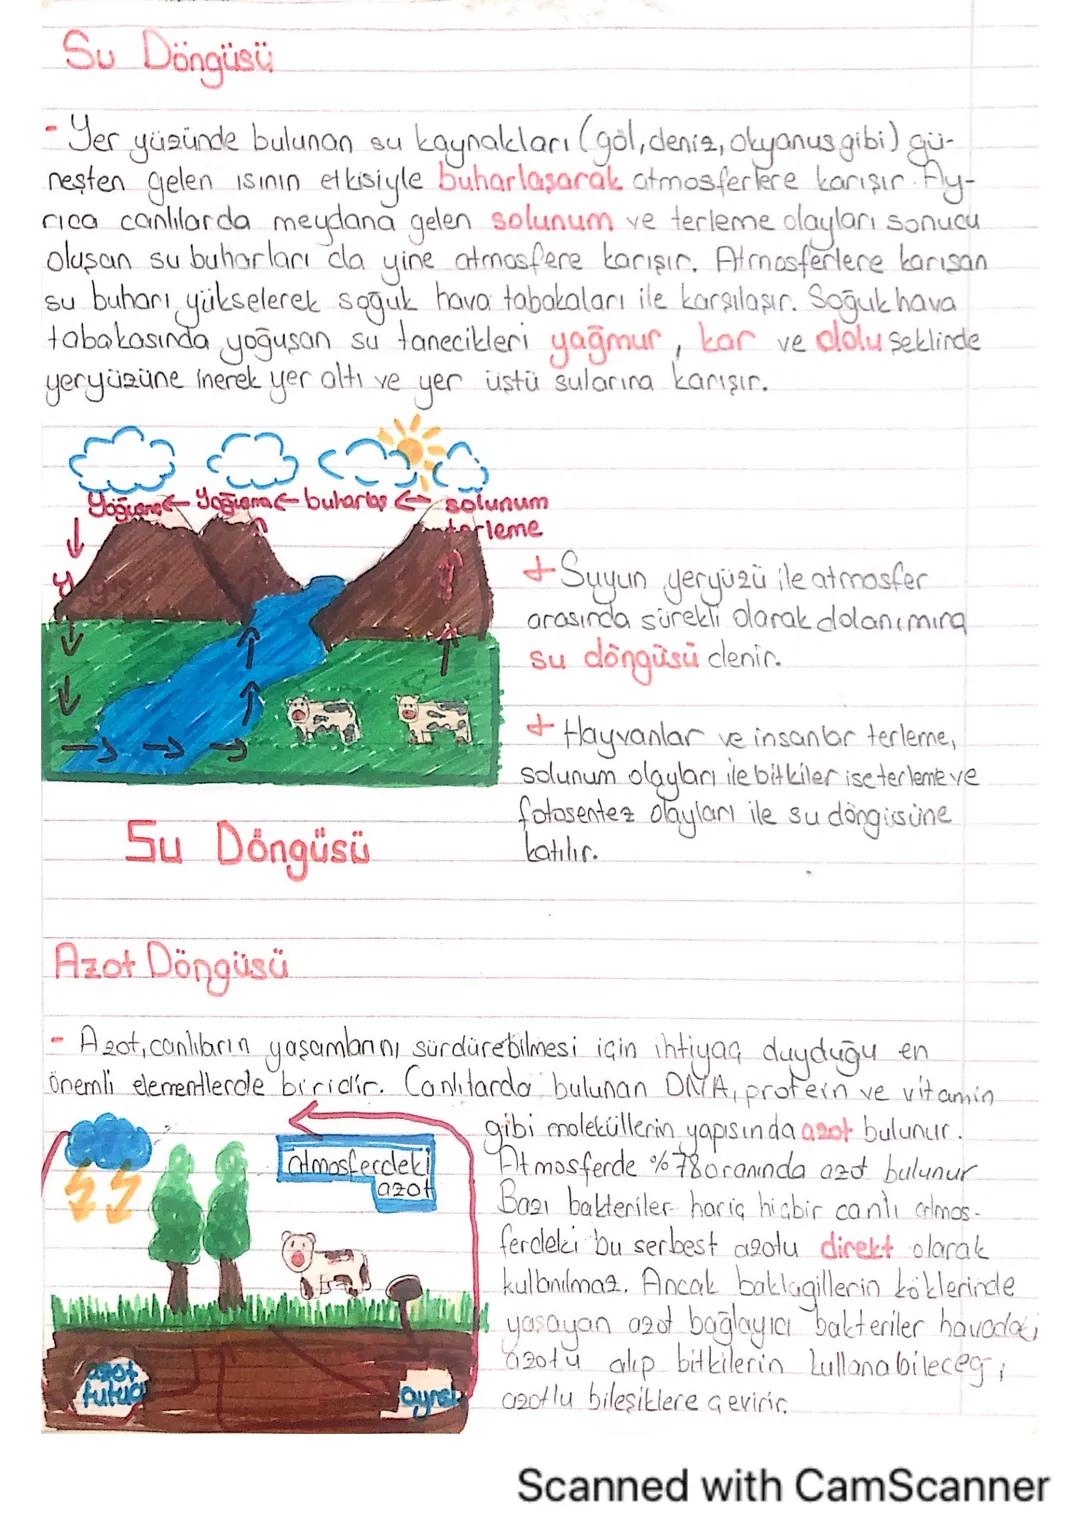 Su Döngüsü
- Yer yüzünde bulunan su kaynakları (göl, deniz, okyanus gibi) gü-
neşten gelen ısının etkisiyle buharlaşarak atmosferlere karışır. Ay-
rıca canlılarda meydana gelen solunum ve terleme olayları sonucu
oluşan su buharları da yine atmosfere karışır. Atmosferlere karışan
su buharı yükselerek soğuk hava tabakaları ile karşılaşır. Soğuk hava
tabakasında yoğuşan su tanecikleri yağmur, kar ve dolu şeklinde
yeryüzüne inerek yer altı ve yer üstü sularına karışır.
Yoğuşma ← Yoğuşma ← buharlaş ← solunum
terleme
y
+ Suyun yeryüzü ile atmosfer
arasında sürekli olarak dolanımına
su döngüsü denir.
+ Hayvanlar ve insanlar terleme,
solunum olayları ile bitkiler ise terleme ve
fotosentez olayları ile su döngüsüne
katılır.
Su Döngüsü
Azot Döngüsü
- Azot, canlıların yaşamlarını sürdürebilmesi için ihtiyaç duyduğu en
önemli elementlerde biridir. Canlılarda bulunan DNA, protein ve vitamin
gibi moleküllerin yapısında azot bulunur.
Atmosferde %78 oranında azot bulunur
Bazı bakteriler hariç hiçbir canlı atmos-
ferdeki bu serbest azotu direkt olarak
kullanılmaz. Ancak baklagillerin köklerinde
yaşayan azot bağlayıcı bakteriler havadaki
azotu alıp bitkilerin kullanabileceği
azotlu bileşiklere çevirir.
atmosferdeki
azot
azot
tutucu
ayrış
Scanned with CamScanner